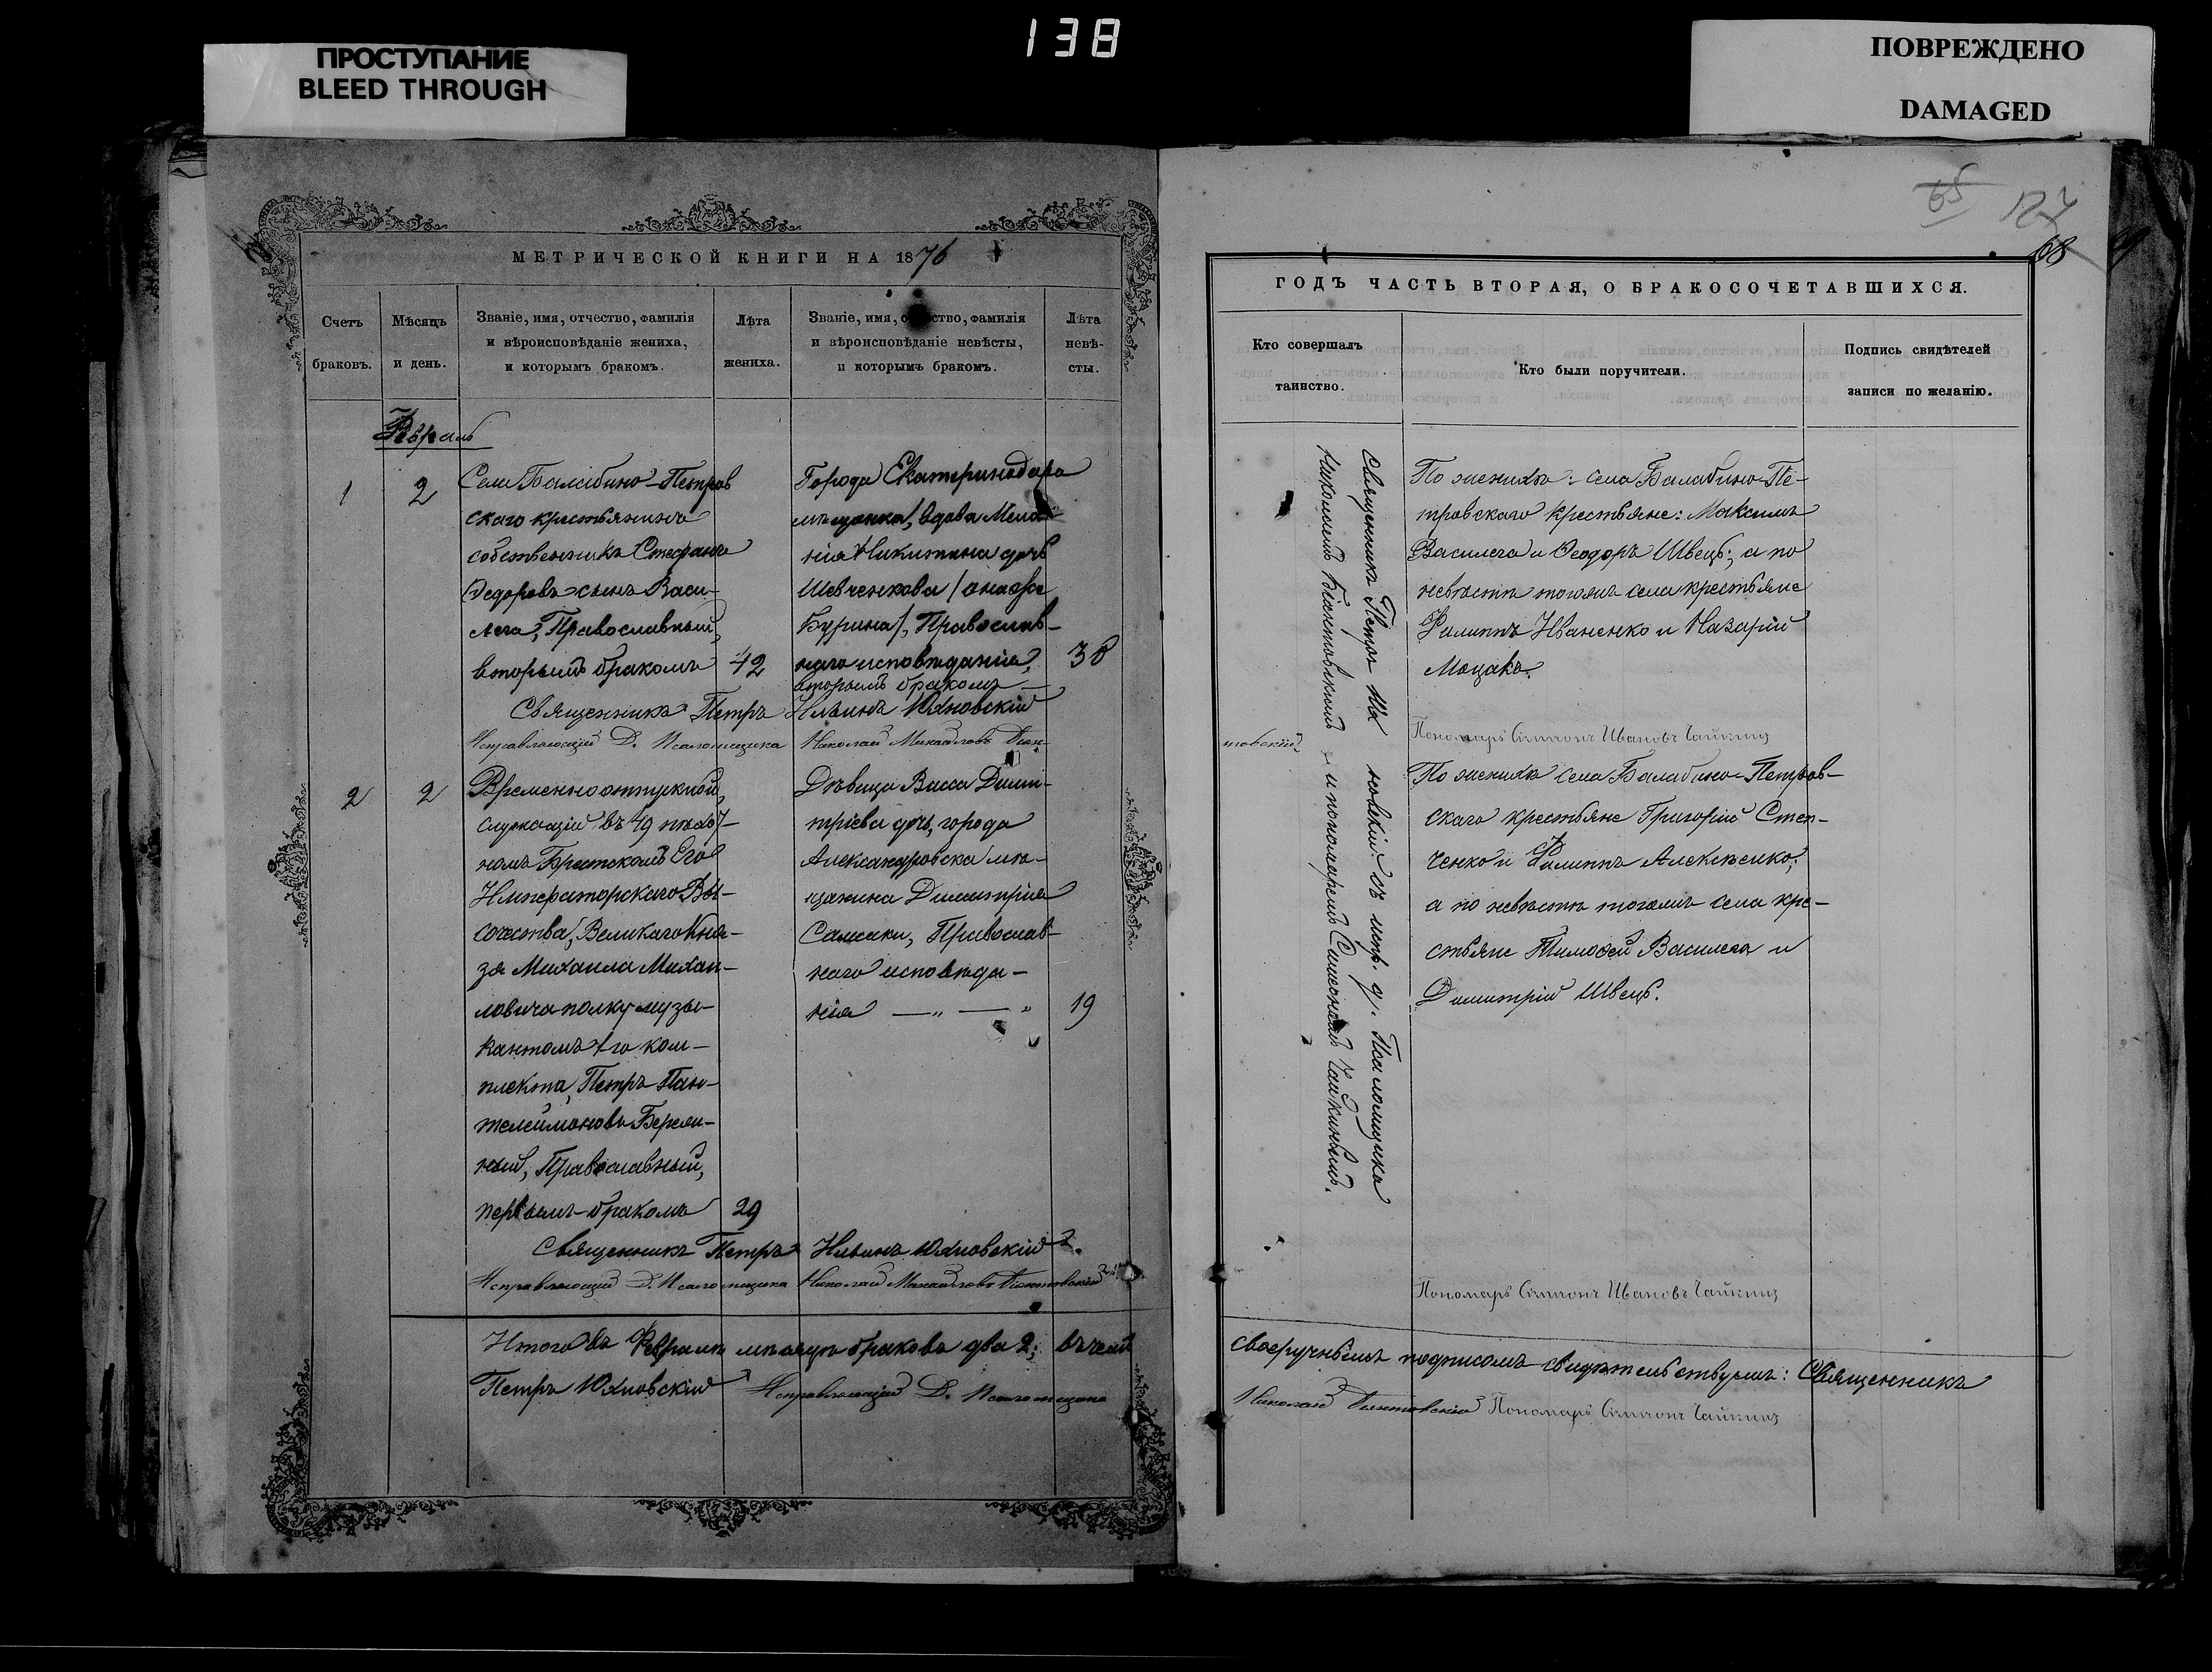 138
ПРОСТУПАНИЕ
BLEED THROUGH
ПОВРЕЖДЕНО
DAMAGED
МЕТРИЧЕСКОЙ КНИГИ НА 1876
Счетъ браковъ.
Мѣсяцъ и день.
Званіе, имя, отчество, фамилія
и вѣроисповѣданіе жениха,
и которымъ бракомъ.
Лѣта жениха.
Званіе, имя, отчество, фамилія
и вѣроисповѣданіе невѣсты,
и которымъ бракомъ.
Лѣта невѣ-
сты.
Февраль
1
2
Села Балабино-Петров
скаго крестьянинъ
собственникъ Стефанъ
Федоровъ сынъ Васи-
лега, Православный,
вторымъ бракомъ
42
Города Екатеринодара
мѣщанка, вдова Мела
нія Никитина дочь
Шевченкова / она же
Бурина /, Православ-
наго исповѣданія,
вторымъ бракомъ
38
Священникъ Петръ Ильинъ Юхновскій
Исправляющій Д. Псаломщика Николай Михайловъ
2
2
Временноотпускной,
служащій въ 79 пѣхот-
номъ Его
Императорскаго Вы-
сочества, Великаго Кня-
зя Михаила Михаи-
ловича полку музы-
кантомъ 1-го ком-
плекта, Петръ Пан-
телеймоновъ Бережи-
ный, Православный,
первымъ бракомъ
29
Дѣвица Васса Дими-
тріева дочь, города
Александровска мѣ-
щанина Димитрія
Самаки, Православ-
наго исповѣда-
нія
19
Священникъ Петръ Ильинъ Юхновскій
Исправляющій Д. Псаломщика Николай Михайловъ
Итого въ Февралѣ мѣсяцѣ браковъ два 2; въ чемъ
Петръ Юхновскій Исправляющій Д. Псаломщика
65
127
68
ГОДЪ ЧАСТЬ ВТОРАЯ, О БРАКОСОЧЕТАВШИХСЯ.
Кто совершалъ
таинство.
Кто были поручители.
Подпись свидѣтелей
записи по желанію.
Священникъ Петръ Юхновскій съ испр. д. Псаломщика
Николаемъ и пономаремъ Симеономъ Чайкинымъ.
По женихѣ: села Балабино-Пе-
тровскаго крестьяне: Максимъ
Василега и Феодоръ Швецъ; а по
невѣстѣ тогожъ села крестьяне
Филиппъ Иваненко и Назарій
Моцакъ.
Пономарь Симеонъ Ивановъ Чайкинъ
По женихѣ села Балабино-Петров-
скаго крестьяне Григорій Степ-
ченко и Филиппъ Алексѣенко;
а по невѣстѣ тогожъ села кре-
стьяне Тимофей Василега и
Димитрій Швецъ.
Пономарь Симеонъ Ивановъ Чайкинъ
своеручнымъ подписомъ свидѣтельствуемъ: Священникъ
Николай Пономарь Симеонъ Чайкинъ